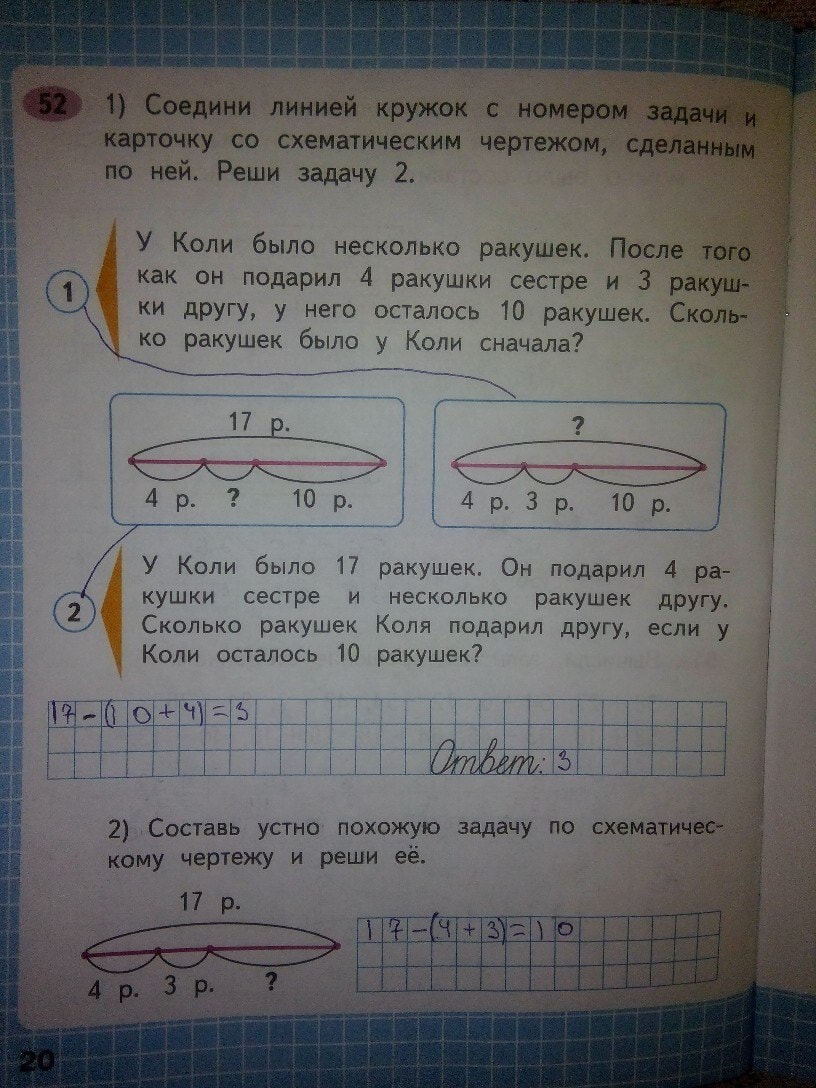 52 1) Соедини линией кружок с номером задачи и
карточку со схематическим чертежом, сделанным
по ней. Реши задачу 2.
1
У Коли было несколько ракушек. После того
как он подарил 4 ракушки сестре и 3 ракуш-
ки другу, у него осталось 10 ракушек. Сколь-
ко ракушек было у Коли сначала?
17 р.
4 р. ? 10 р.
?
4 р. 3 р. 10 р.
2
У Коли было 17 ракушек. Он подарил 4 ра-
кушки сестре и несколько ракушек другу.
Сколько ракушек Коля подарил другу, если у
Коли осталось 10 ракушек?
17-(10+4)=3
Ответ: 3
2) Составь устно похожую задачу по схематичес-
кому чертежу и реши её.
17 р.
4 р. 3 р. ?
17-(4+3)=10
20